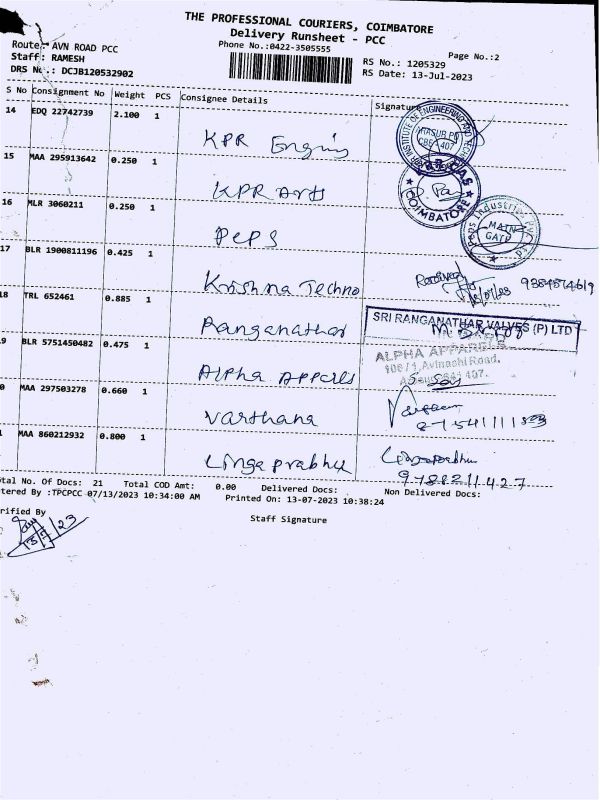 THE PROFESSIONAL COURIERS, COIMBATORE
Delivery Runsheet - PCC
Phone No.:0422-3505555
Page No.:2
Route: AVN ROAD PCC
Staff: RAMESH
DRS No.: DCJB120532902
RS No.: 1205329
RS Date: 13-Jul-2023
S No Consignment No Weight PCS Consignee Details Signature
14 EDQ 22742739 2.100 1
KPR Enging
15 MAA 295913642 0.250 1
KPR Arts
COIMBATORE
16 MLR 3060211 0.250 1
Peps
Peps Industries
MAIN GATE
17 BLR 1900811196 0.425 1
Krishna Techno
8 TRL 652461 0.885 1
Ranganathar
SRI RANGANATHAR VALVES (P) LTD
9 BLR 5751450482 0.475 1
Alpha Apparls
ALPHA APPARELS
Avinashi Road,
0 MAA 297503278 0.660 1
Varthana
MAA 860212932 0.800 1
Linga prabhu
Lingaprabhu
tal No. Of Docs: 21 Total COD Amt: 0.00 Delivered Docs: Non Delivered Docs:
tered By :TPCPCC 07/13/2023 10:34:00 AM Printed On: 13-07-2023 10:38:24
rified By
Staff Signature